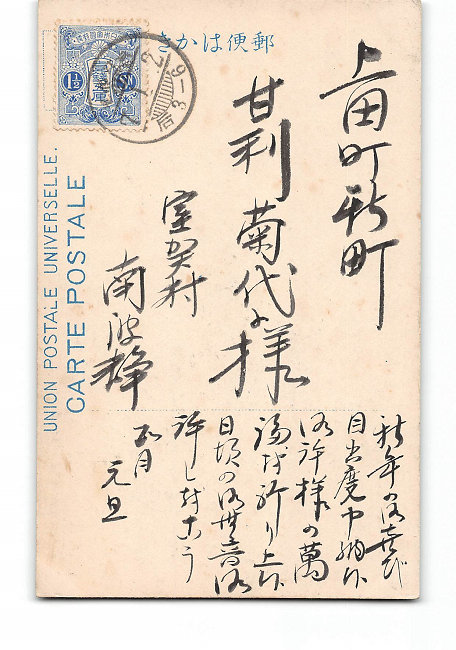 郵便はかき
UNION POSTALE UNIVERSELLE.
CARTE POSTALE
上田町新町
甘利菊代様
室賀村
南波静
新年の御喜び
目出度申納候
御許様の萬
福を祈り上候
日頃の御無音御
許し
正月
元旦